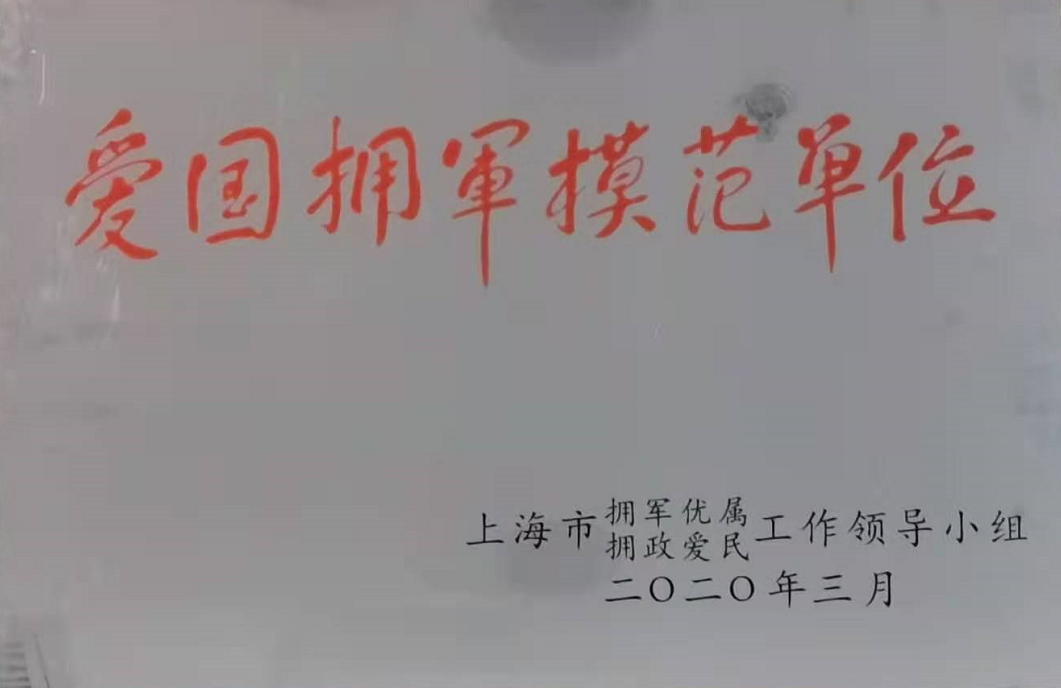 爱国拥軍模范单位
上海市拥军优属工作领导小组
拥政爱民
二〇二〇年三月